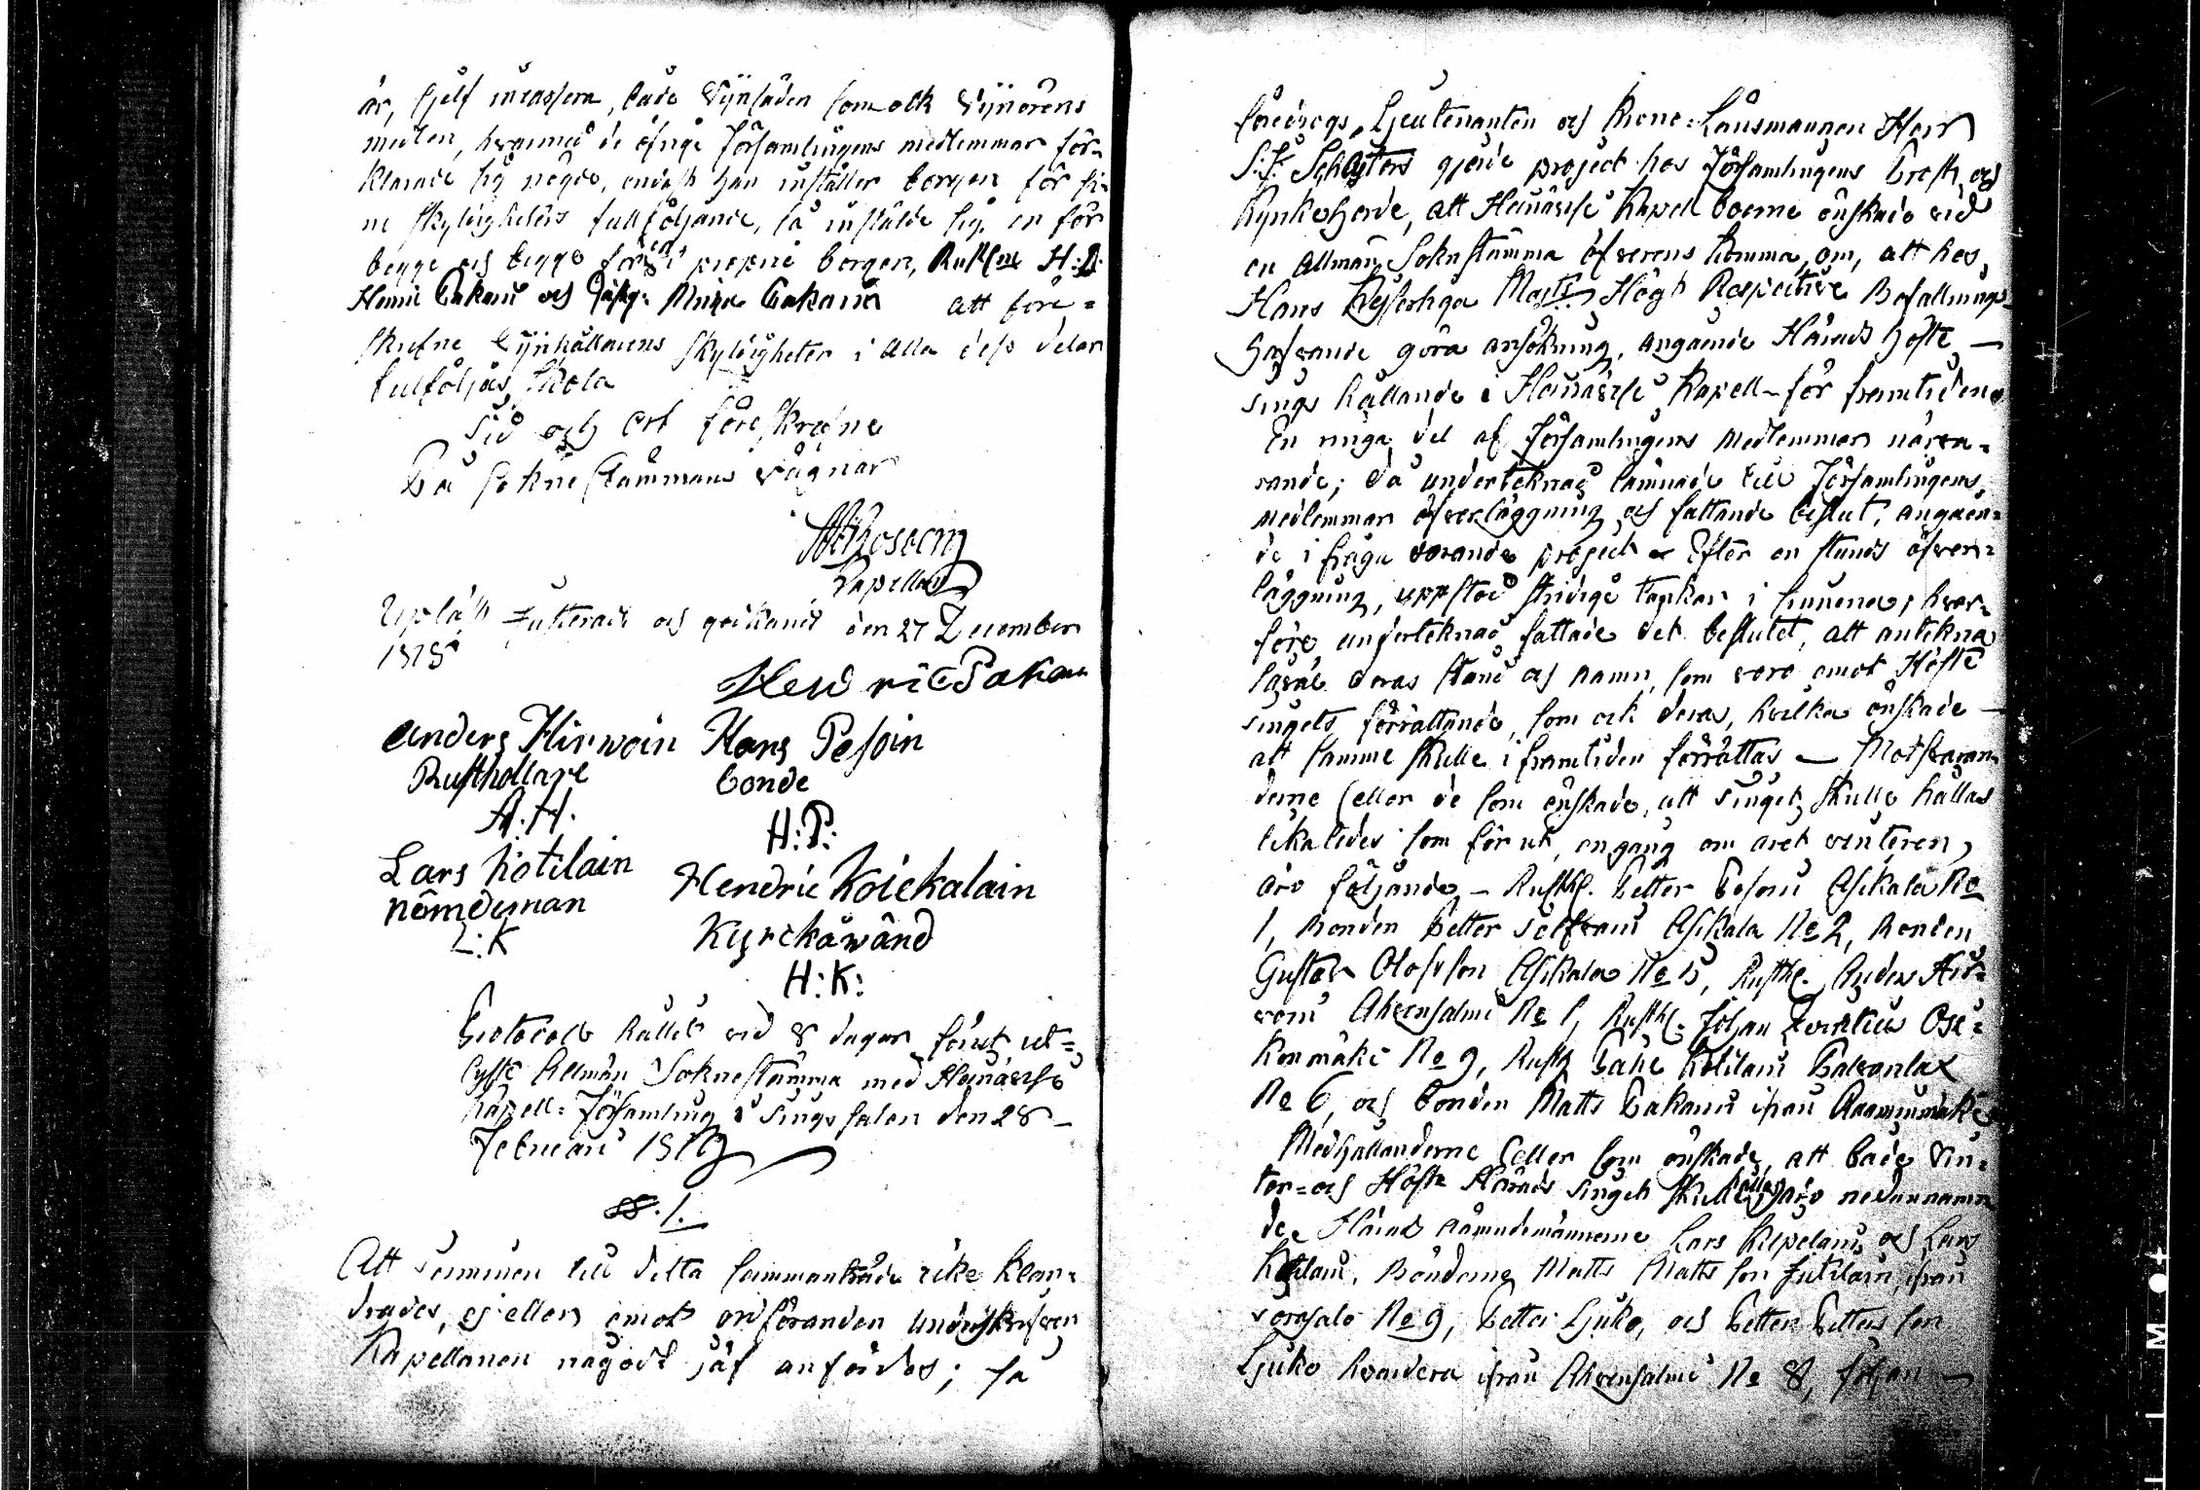 år, sjelf incassera, både Tijnsäden som ock Tijnörens
medlen, hvarmed de öfrige Församlingens medlemmar för-
klarade sig nögde, endast han inställer borgen för si-
ne skyldigheters fullföljande, så instälde sig en för
begge och begge för en i proprie borgen, H:
Henric Pakain och Pakain att före-
skrefne skyldigheter i alla dess delar
fulföljas skola
Tid och ort föreskrefne
På Sokne Stämmans Vägnar
Kapellan
Upläst Justeradt och godkändt den 27 December
1818
Hendric Pakain
Anders Hirwoin Hans Pesoin
Rusthollare bonde
A.H. H:P:
Lars Kotilain Hendric Koiekalain
nämdeman Kyrckåwänd
L:K H:K:
Protocoll hållit vid 8 dagar förut ut-
lyst Allmän Sokne stämma med Heinävesi
Kapell-Församling i Tings salen den 28
Februarii 1819
§. 1.
Att Terminen till detta sammanträde icke klan-
drades, ej eller emot ordföranden underskrifven
Kapellanen någodt jäf anfördes; så
föredrogs Lieutenanten och Krono-Länsmannen Herr
S:J: Schlyters gjorde project hos Församlingens Prost och
Kyrkoherde, att Heinävesi Kapell boerne önskade vid
en Allmän Soknstämma öfverens komma om, att hos
Hans Kejserliga Majts Högt Respective Befallnings-
hafvande göra ansökning, angående Härads Höste
tings hållande i Heinävesi Kapell för framtiden
En ringa del af Församlingens medlemmar närva-
rande; då undertecknad lämnade till Församlingens
medlemmar öfverläggning och fattande beslut, angåen-
de i fråga varande project Efter en stunds öfver-
läggning, uppstod stridige tankar i sinnena; hvar-
före undertecknad fattade det beslutet, att anteckna
såväl deras stånd och namn, som voro emot Höste
tingets förrättande, som ock deras, hvilka önskade
att samme skulle i framtiden förrättas — Motsvaran-
derne (eller de som önskade, att Tinget skulle hållas
likaledes som förut, engång om året vinteren,
äro följande — Rusth. Petter Pesoin Asikala No
1, Bonden Petter Asikala No 2, Bonden
Gustav Olofsson Asikala No 15, Rusth. Anders Hir-
voin Ahvensalmi No 1, Rusth. Johan
No 9, Rusth. Kotilain
No 6, och bonden Matts Pakain ifrån
Medhållanderne (eller som önskade, att både Vin-
ter- och Höste Härads Tinget skulle hållas) äro nedannämn-
de, Härads nämndemännerne Lars och Lars
Kotilain, Bönderne Matts Matts son ifrån
No 9, Petter Ljuko, och Petter Petters son
Ljuko hvardera ifrån Ahvensalmi No 8, Johan